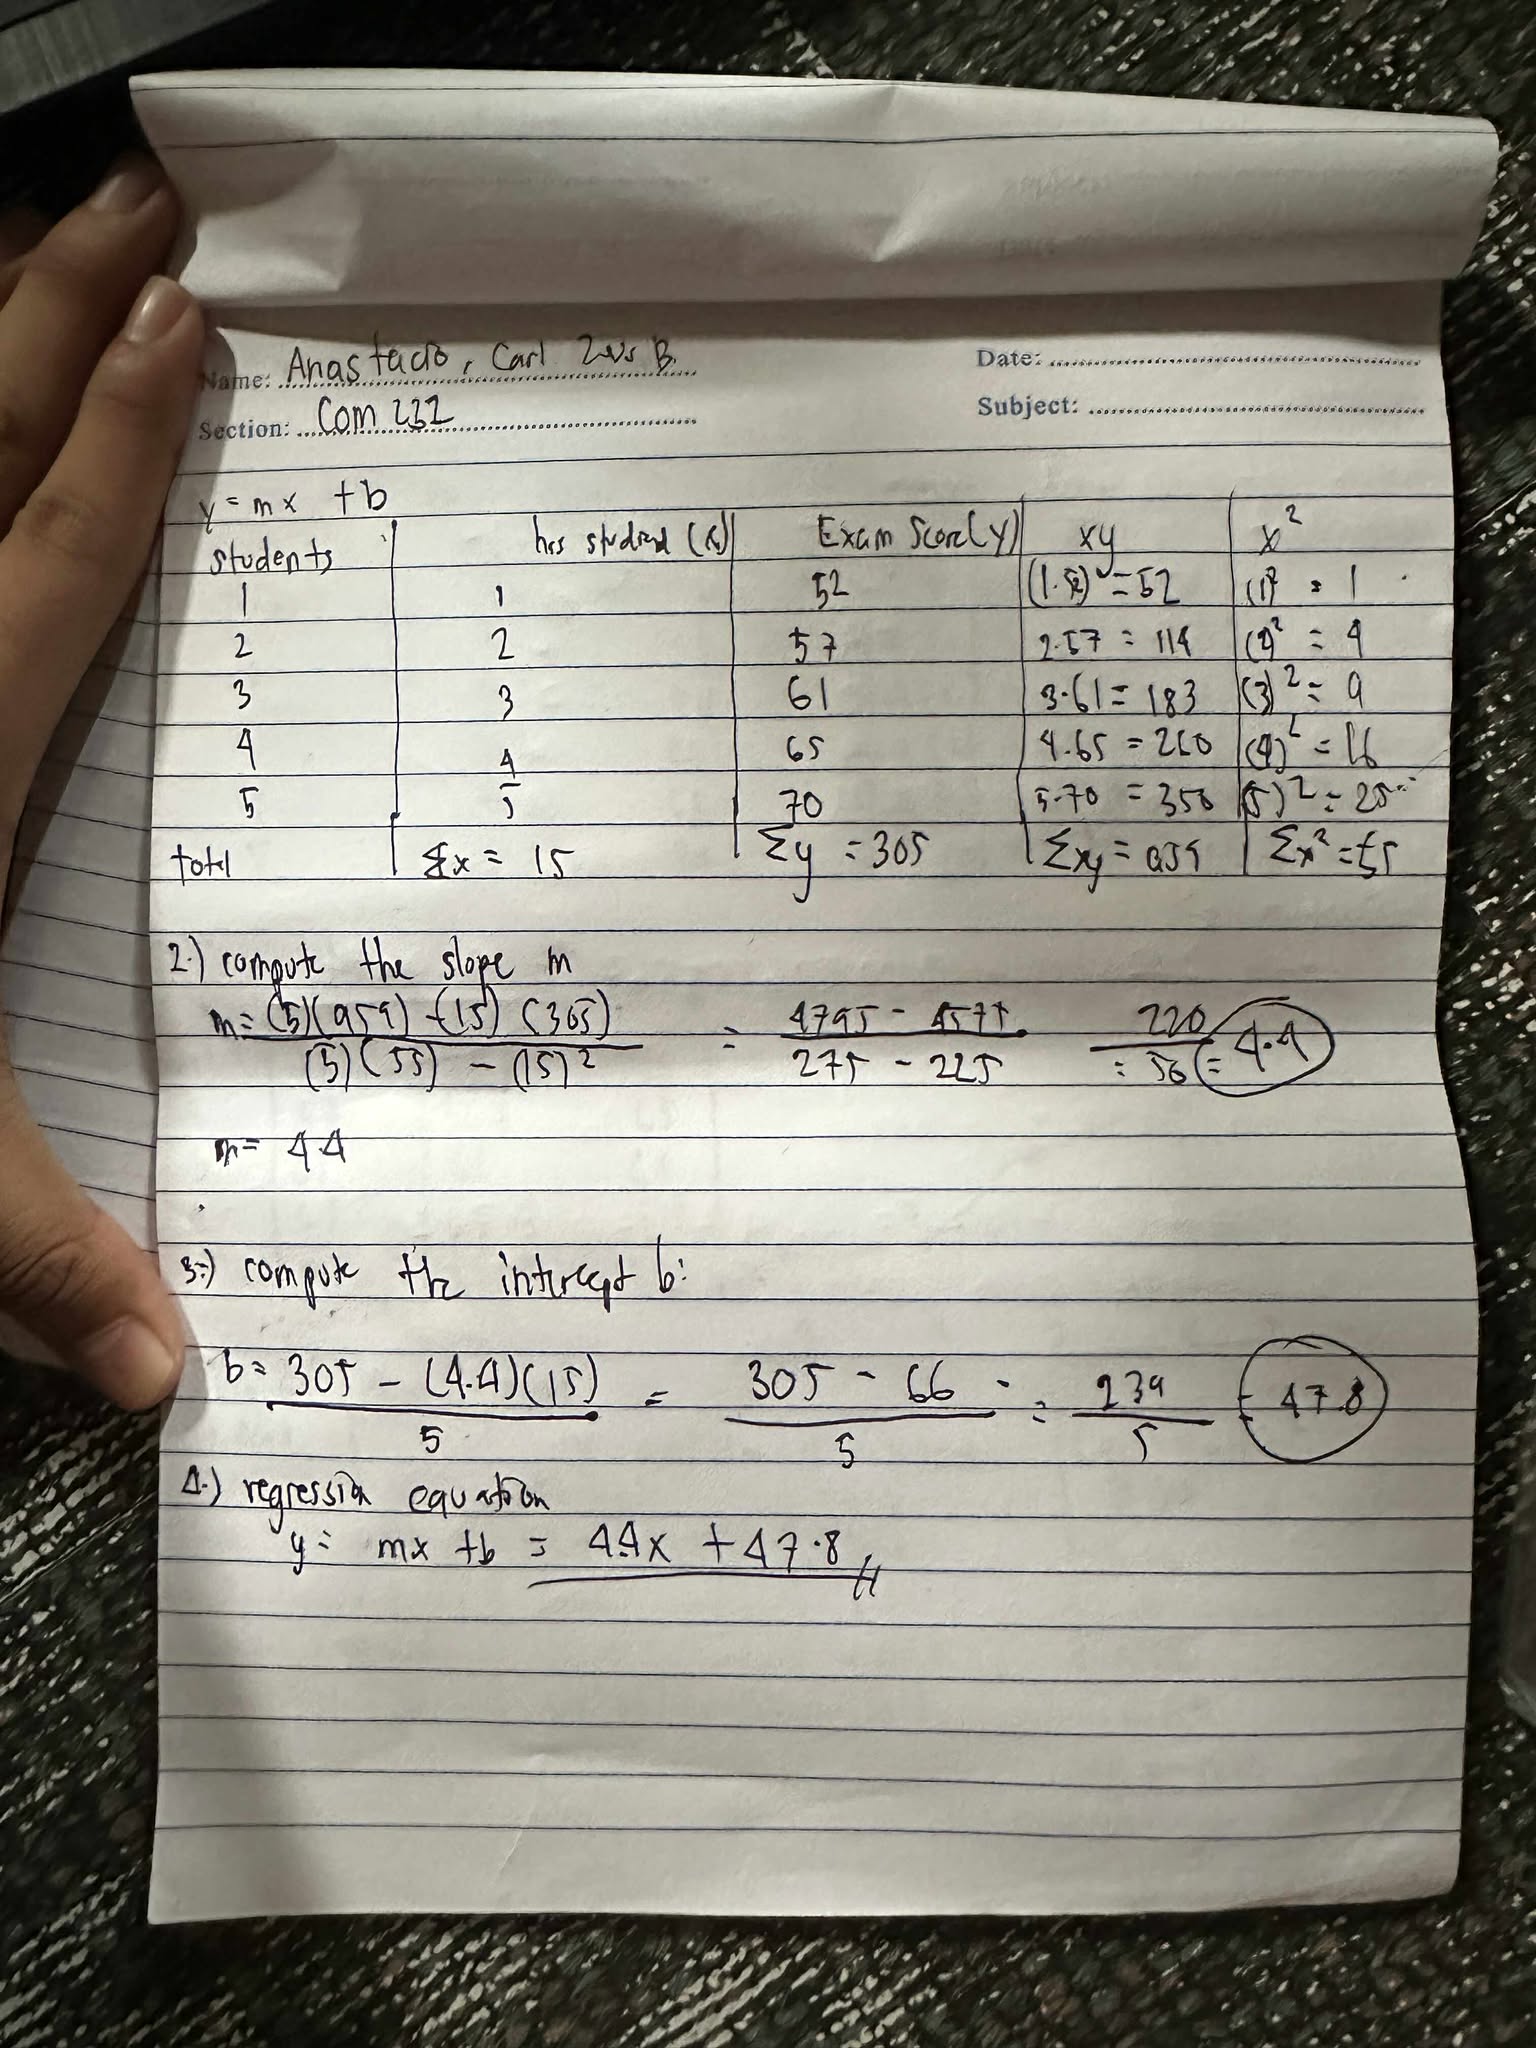 Name: Anastacio, Carl B.
Date:
Section: Com 232
Subject:
y = mx + b
students hrs studied (x) Exam Score (y) xy x²
1 1 52 (1·52) = 52 (1)² = 1
2 2 57 2·57 = 114 (2)² = 4
3 3 61 3·61 = 183 (3)² = 9
4 4 65 4·65 = 260 (4)² = 16
5 5 70 5·70 = 350 (5)² = 25
total Σx = 15 Σy = 305 Σxy = 959 Σx² = 55
2.) compute the slope m
m = (5)(959) - (15) (305) / (5)(55) - (15)² = 4795 - 4575 / 275 - 225 = 220 / 50 = 4.4
m = 4.4
3.) compute the intercept b:
b = 305 - (4.4)(15) / 5 = 305 - 66 / 5 = 239 / 5 = 47.8
4.) regression equation
y = mx + b = 4.4x + 47.8